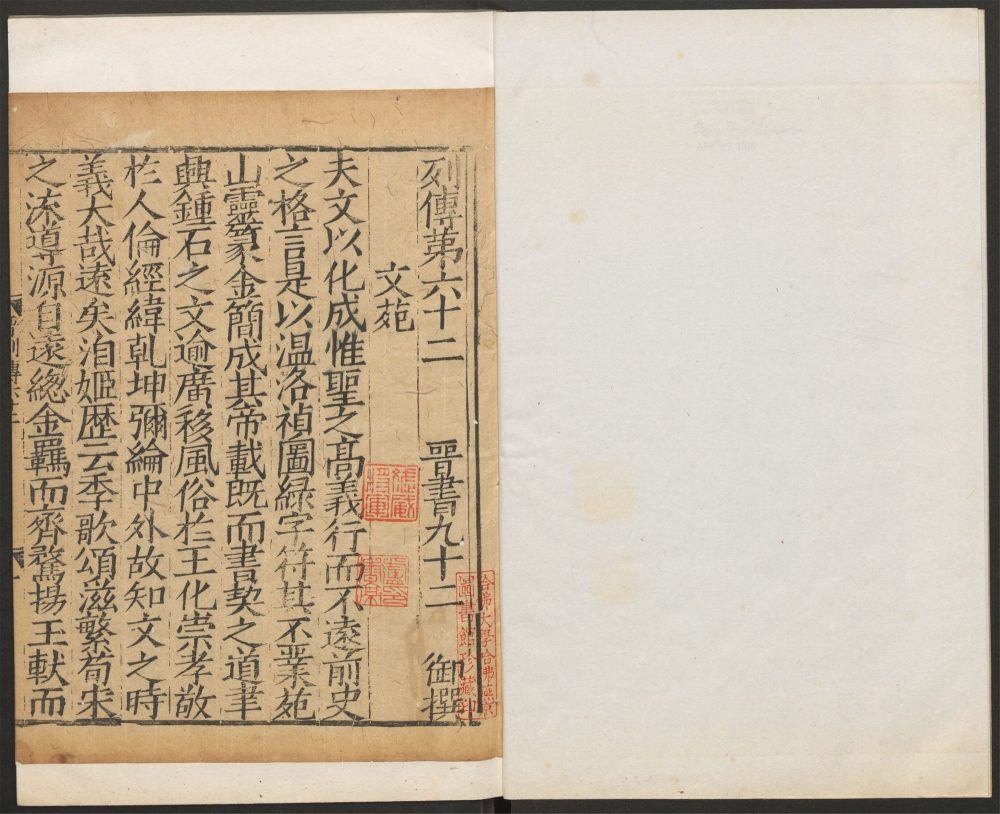 列傳第六十二 晉書九十二 御撰
文苑
夫文以化成惟聖之髙義行而不遠前史
之格言是以温洛禎圖緑字符其不業苑
山靈篆金簡成其帝載既而書契之道聿
興鍾石之文逾廣移風俗扵王化崇孝敬
扵人倫經緯乹坤彌綸中外故知文之時
義大哉遠矣洎姬歴云季歌頌滋繁荀宋
之流導源自逺總金羈而齊騖揚玉軑而
哈佛大學哈佛燕京
圖書館珍藏印